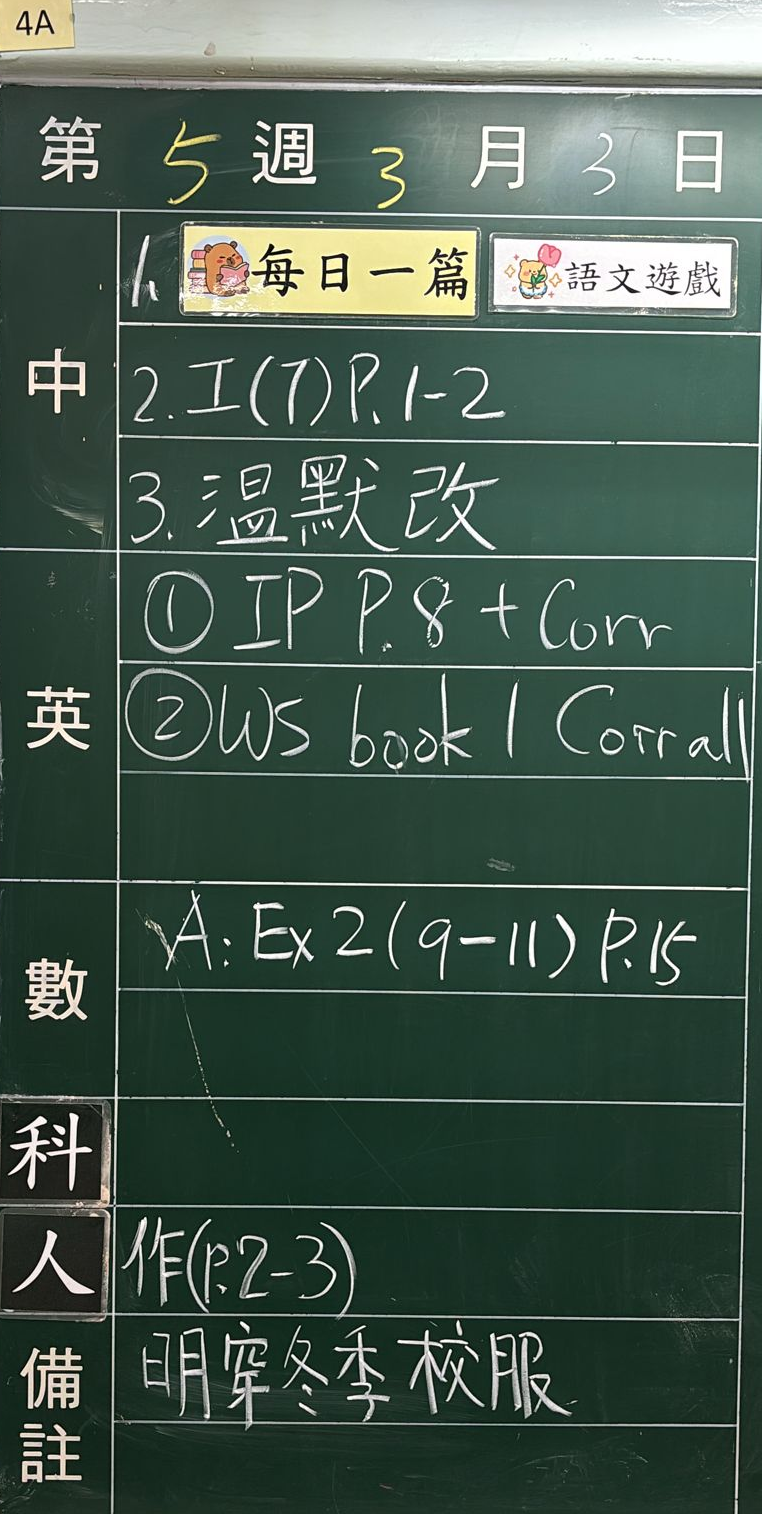 4A
第 5 週 3 月 3 日
中
1. 每日一篇 語文遊戲
2. 工(T) P. 1-2
3. 溫默改
英
① IP P. 8 + Corr
② WS book 1 Corr all
數
A: Ex 2 (9-11) P. 15
科
人
作(P.2-3)
備註
明穿冬季校服